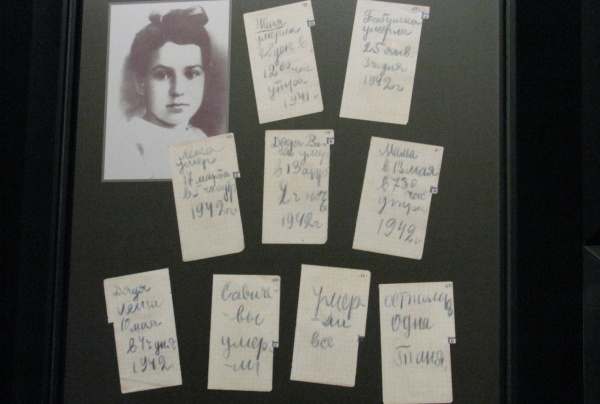 Женя
умерла
28 дек в
12 00 час
утра
1941 г
Бабушка
умерла
25 янв.
3 ч дня
1942 г
Лека
умер
17 марта
в 5 час утр
1942 г
Дядя Ва
ся умер
в 13 апр
2 ч ночь
1942 г
Мама
в 13 мая
в 7 30
час
утра
1942 г
Дядя
Леша
10 мая
в 4 ч дня
1942 г
Савиче
-вы
умер-
-ли
Умер
ли
все
осталась
одна
Таня